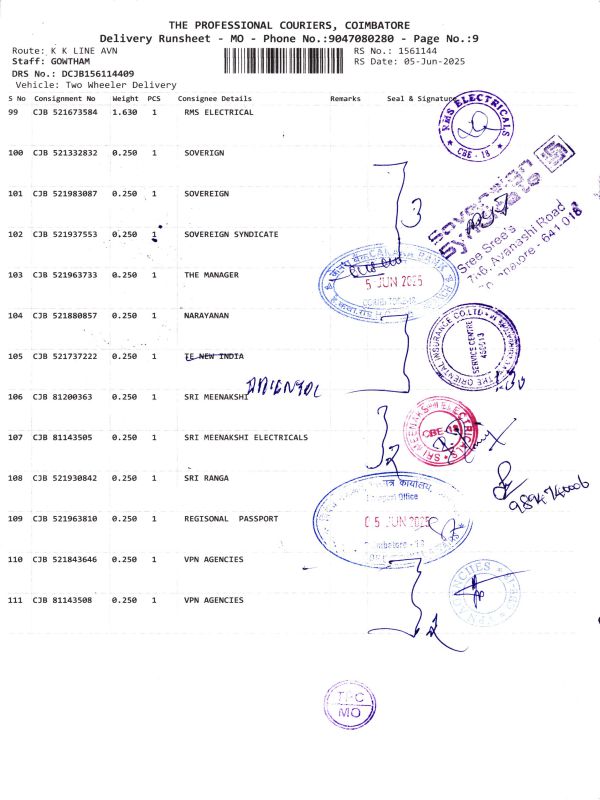 THE PROFESSIONAL COURIERS, COIMBATORE
Delivery Runsheet - MO - Phone No.:9047080280 - Page No.:9
Route: K K LINE AVN
RS No.: 1561144
Staff: GOWTHAM
RS Date: 05-Jun-2025
DRS No.: DCJB156114409
Vehicle: Two Wheeler Delivery
S No Consignment No Weight PCS Consignee Details Remarks Seal & Signature
99 CJB 521673584 1.630 1 RMS ELECTRICAL
RMS ELECTRICALS
CBE - 18
100 CJB 521332832 0.250 1 SOVERIGN
101 CJB 521983087 0.250 1 SOVEREIGN
3
Sovereign
Syndicate
Sree Sree's
Avanashi Road
641 018
102 CJB 521937553 0.250 1 SOVEREIGN SYNDICATE
103 CJB 521963733 0.250 1 THE MANAGER
5 JUN 2025
104 CJB 521880857 0.250 1 NARAYANAN
THE ORIENTAL INSURANCE CO.LTD
SERVICE CENTRE
105 CJB 521737222 0.250 1 TE NEW INDIA
ORIENTAL
106 CJB 81200363 0.250 1 SRI MEENAKSHI
SRI MEENAKSHI ELECTRICALS
CBE-18
107 CJB 81143505 0.250 1 SRI MEENAKSHI ELECTRICALS
2
108 CJB 521930842 0.250 1 SRI RANGA
कार्यालय
Office
109 CJB 521963810 0.250 1 REGISONAL PASSPORT
05 JUN 2025
Coimbatore - 18
110 CJB 521843646 0.250 1 VPN AGENCIES
VPN AGENCIES
111 CJB 81143508 0.250 1 VPN AGENCIES
2
TPC
MO